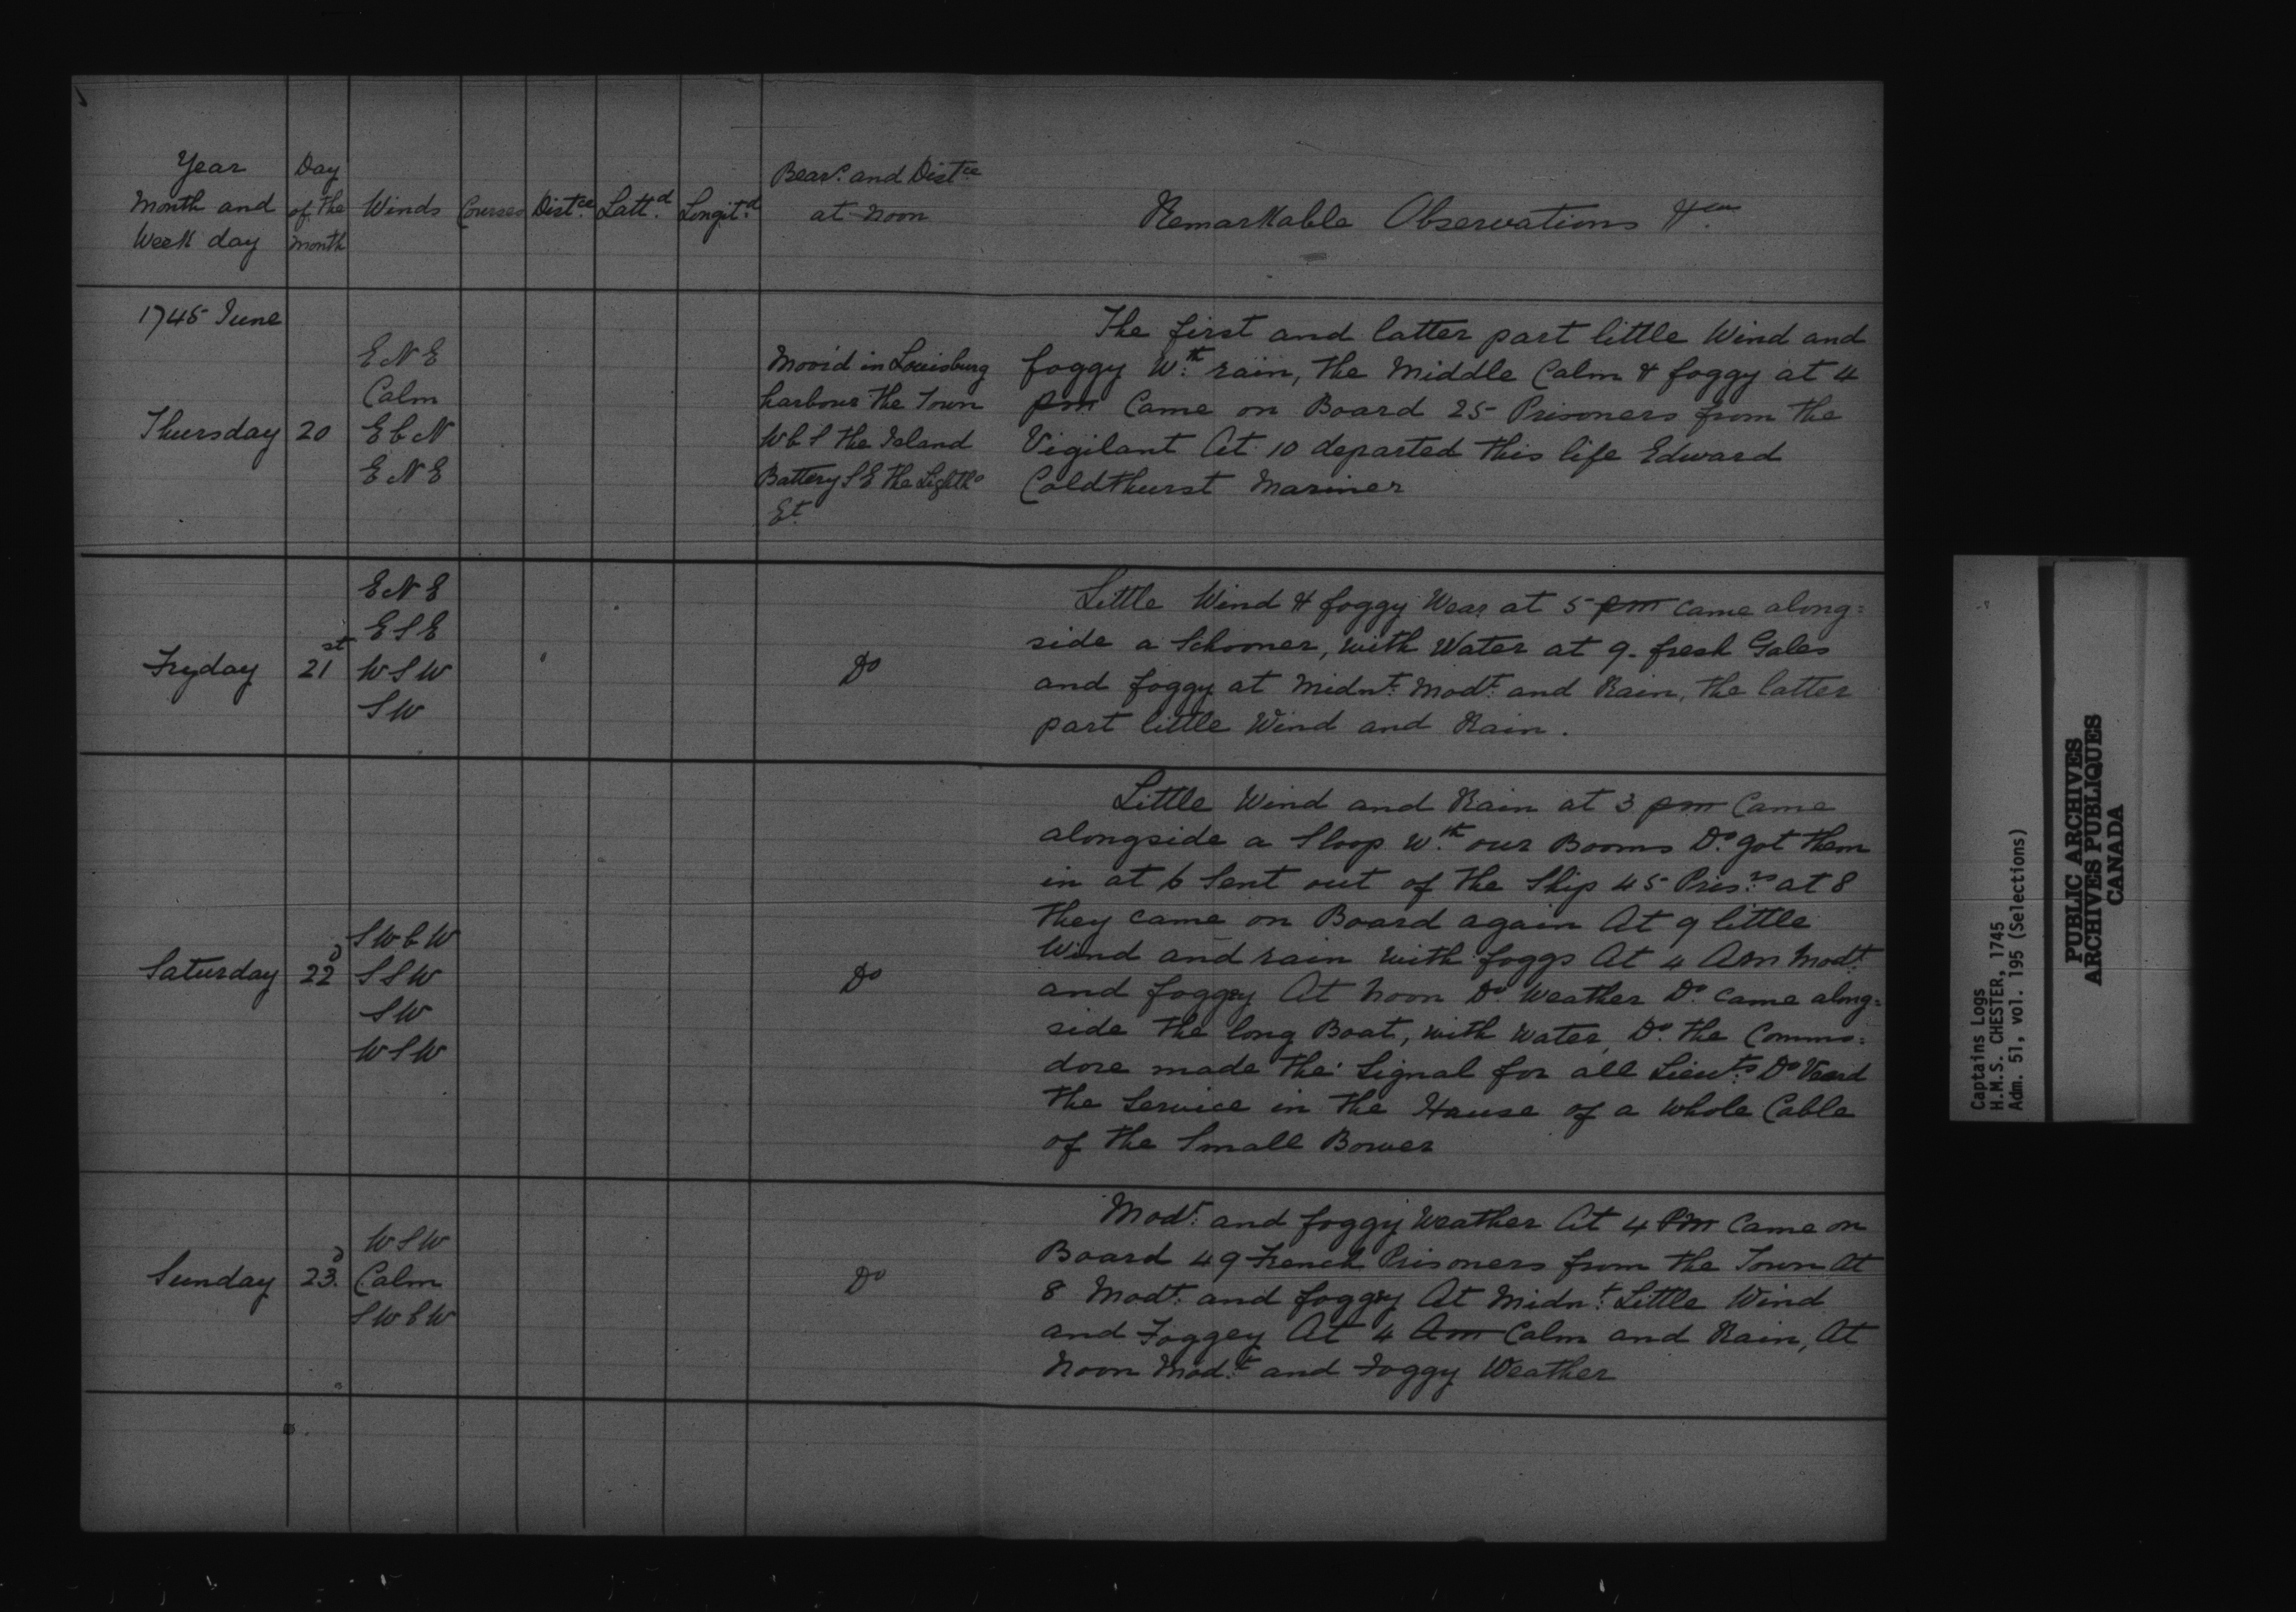 Year Month and Week day
Day of the Month
Winds
Courses
Dist.ce
Latt.d
Longit.d
Bear.s and Dist.ce at Noon
Remarkable Observations &ca.
1745 June
Thursday 20
E N E
Calm
E b N
E N E
Moor'd in Louisburg
harbour the Town
W b S the Island
Battery S E the Lightho
Et.
The first and latter part little Wind and
foggy W.th rain, the Middle Calm & foggy at 4
pm Came on Board 25 Prisoners from the
Vigilant At 10 departed this life Edward
Coldthurst Mariner
Fryday 21st
E N E
E S E
W S W
S W
Do
Little Wind & foggy Wear at 5 pm came along=
side a Schooner, with Water at 9 fresh Gales
and foggy at Midnt. Modt. and Rain, the latter
part little Wind and Rain.
Saturday 22d
S W b W
S S W
S W
W S W
Do
Little Wind and Rain at 3 pm Came
alongside a Sloop W.th our Booms Do. got them
in at 6 Sent out of the Ship 45 Pris.rs at 8
they came on Board again At 9 little
Wind and rain with foggs At 4 Am Modt.
and foggy At Noon Do. Weather Do. came along=
side the long Boat, with Water, Do. the Commo=
dore made the Signal for all Lieuts. Do Veerd
the Service in the Hause of a whole Cable
of the Small Bower
Sunday 23d.
W S W
Calm
S W b W
Do
Modt. and foggy Weather At 4 PM Came on
Board 49 French Prisoners from the Town At
8 Modt. and foggy At Midn.t Little Wind
and Foggey At 4 Am Calm and Rain, At
Noon Mod.t and Foggy Weather
Captains Logs
H.M.S. CHESTER, 1745
Adm. 51, vol. 195 (Selections)
PUBLIC ARCHIVES
ARCHIVES PUBLIQUES
CANADA